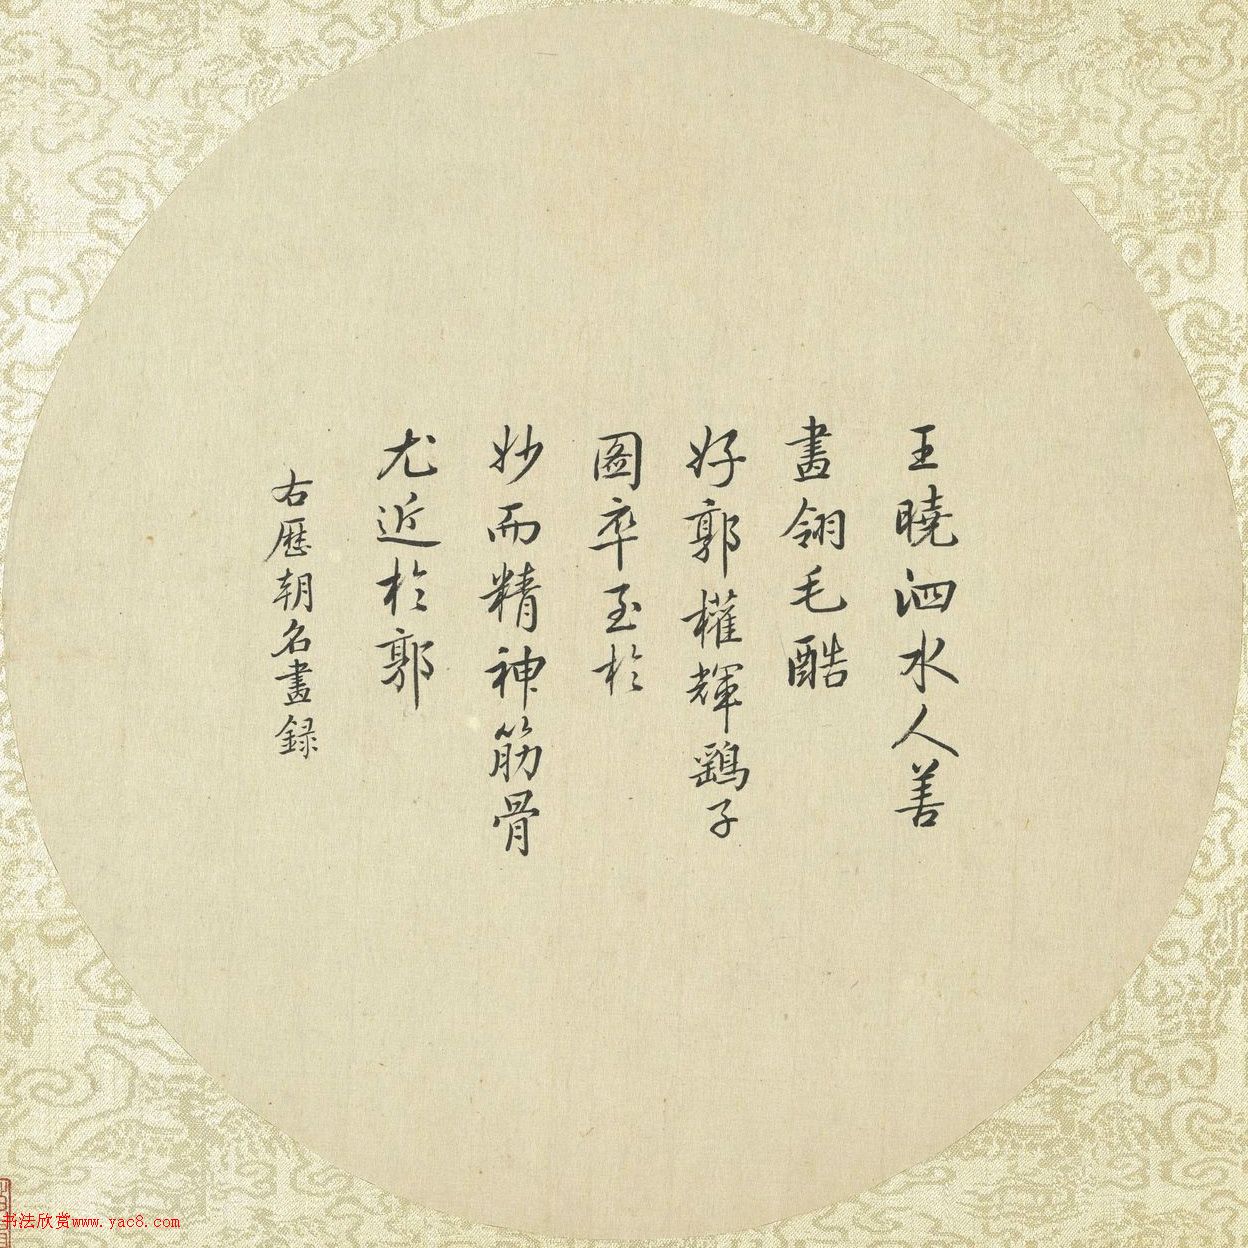 王曉泗水人善
畫翎毛酷
好郭權輝鷂子
圖卒至於
妙而精神筋骨
尤近於郭
右歷朝名畫録
书法欣赏www.yac8.com